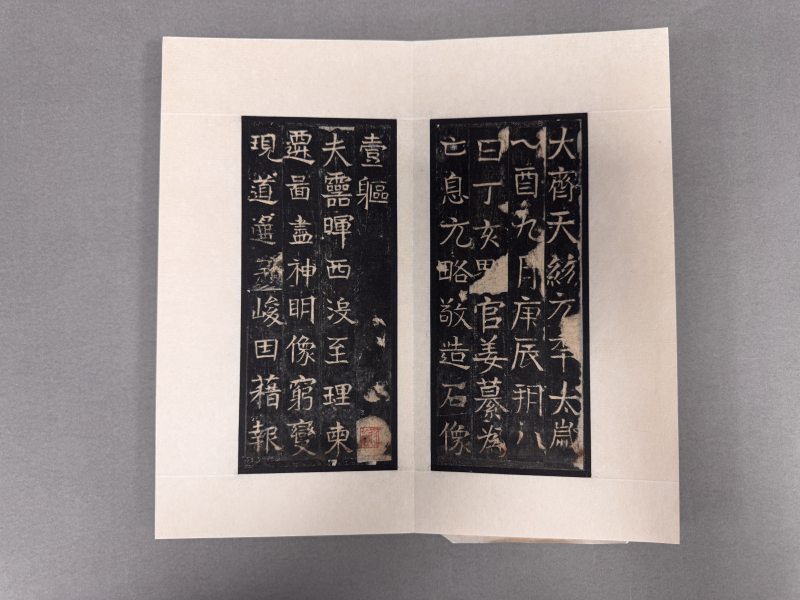 大齊天統元年太歲
乙酉九月庚辰朔八
日丁亥男官姜纂為
亡息元略敬造石像
壹軀
夫靈暉西沒至理東
遷啚盡神明像窮變
現道峻因藉報